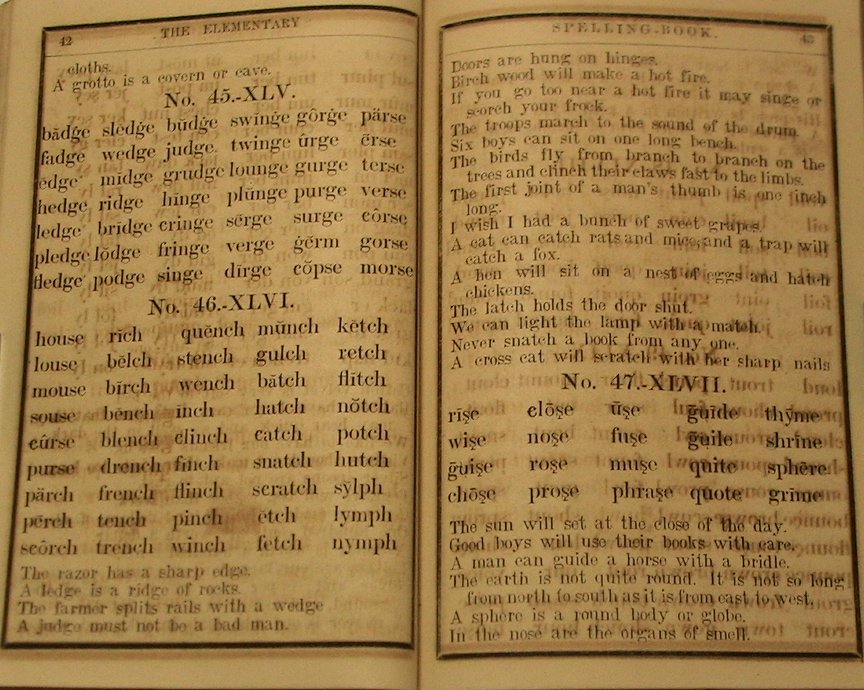 42 THE ELEMENTARY
cloths.
A grotto is a covern or cave.
No. 45.-XLV.
bădġe slĕdġe bŭdġe swĭnġe gôrġe pärse
fadge wedge judge twinge ûrge ẽrse
ĕdge mĭdge grudge lounge gurge terse
hedge ridge hĭnge plŭnge purge verse
ledge brĭdge cringe sẽrge surge côrse
pledge lŏdge fringe verge ġẽrm gorse
fledge podge singe dĩrge cŏpse morse
No. 46.-XLVI.
house rĭch quĕnch mŭnch kĕtch
louse bĕlch stench gulch retch
mouse bĩrch wench bătch flĭtch
souse bĕnch ĭnch hatch nŏtch
cûrse blench clinch catch potch
purse drench finch snatch hutch
pärch french flinch scratch sўlph
pẽrch tench pinch ĕtch lymph
scôrch trench winch fetch nymph
The razor has a sharp edge.
A ledge is a ridge of rocks.
The farmer splits rails with a wedge
A judge must not be a bad man.
SPELLING-BOOK. 43
Doors are hung on hinges.
Birch wood will make a hot fire.
If you go too near a hot fire it may singe or
scorch your frock.
The troops march to the sound of the drum.
Six boys can sit on one long bench.
The birds fly from branch to branch on the
trees and clinch their claws fast to the limbs.
The first joint of a man's thumb is one inch
long.
I wish I had a bunch of sweet grapes.
A cat can catch rats and mice, and a trap will
catch a fox.
A hen will sit on a nest of eggs and hatch
chickens.
The latch holds the door shut.
We can light the lamp with a match.
Never snatch a book from any one.
A cross cat will scratch with her sharp nails
No. 47.-XLVII.
rīşe clōşe ūşe ḡuīde thȳme
wişe noşe fuşe ḡuile shrine
ḡuişe roşe muşe quite sphēre
chōşe proşe phraşe quote grīme
The sun will set at the close of the day.
Good boys will use their books with care.
A man can guide a horse with a bridle.
The earth is not quite round. It is not so long
from north to south as it is from east to west.
A sphere is a round body or globe.
In the nose are the organs of smell.